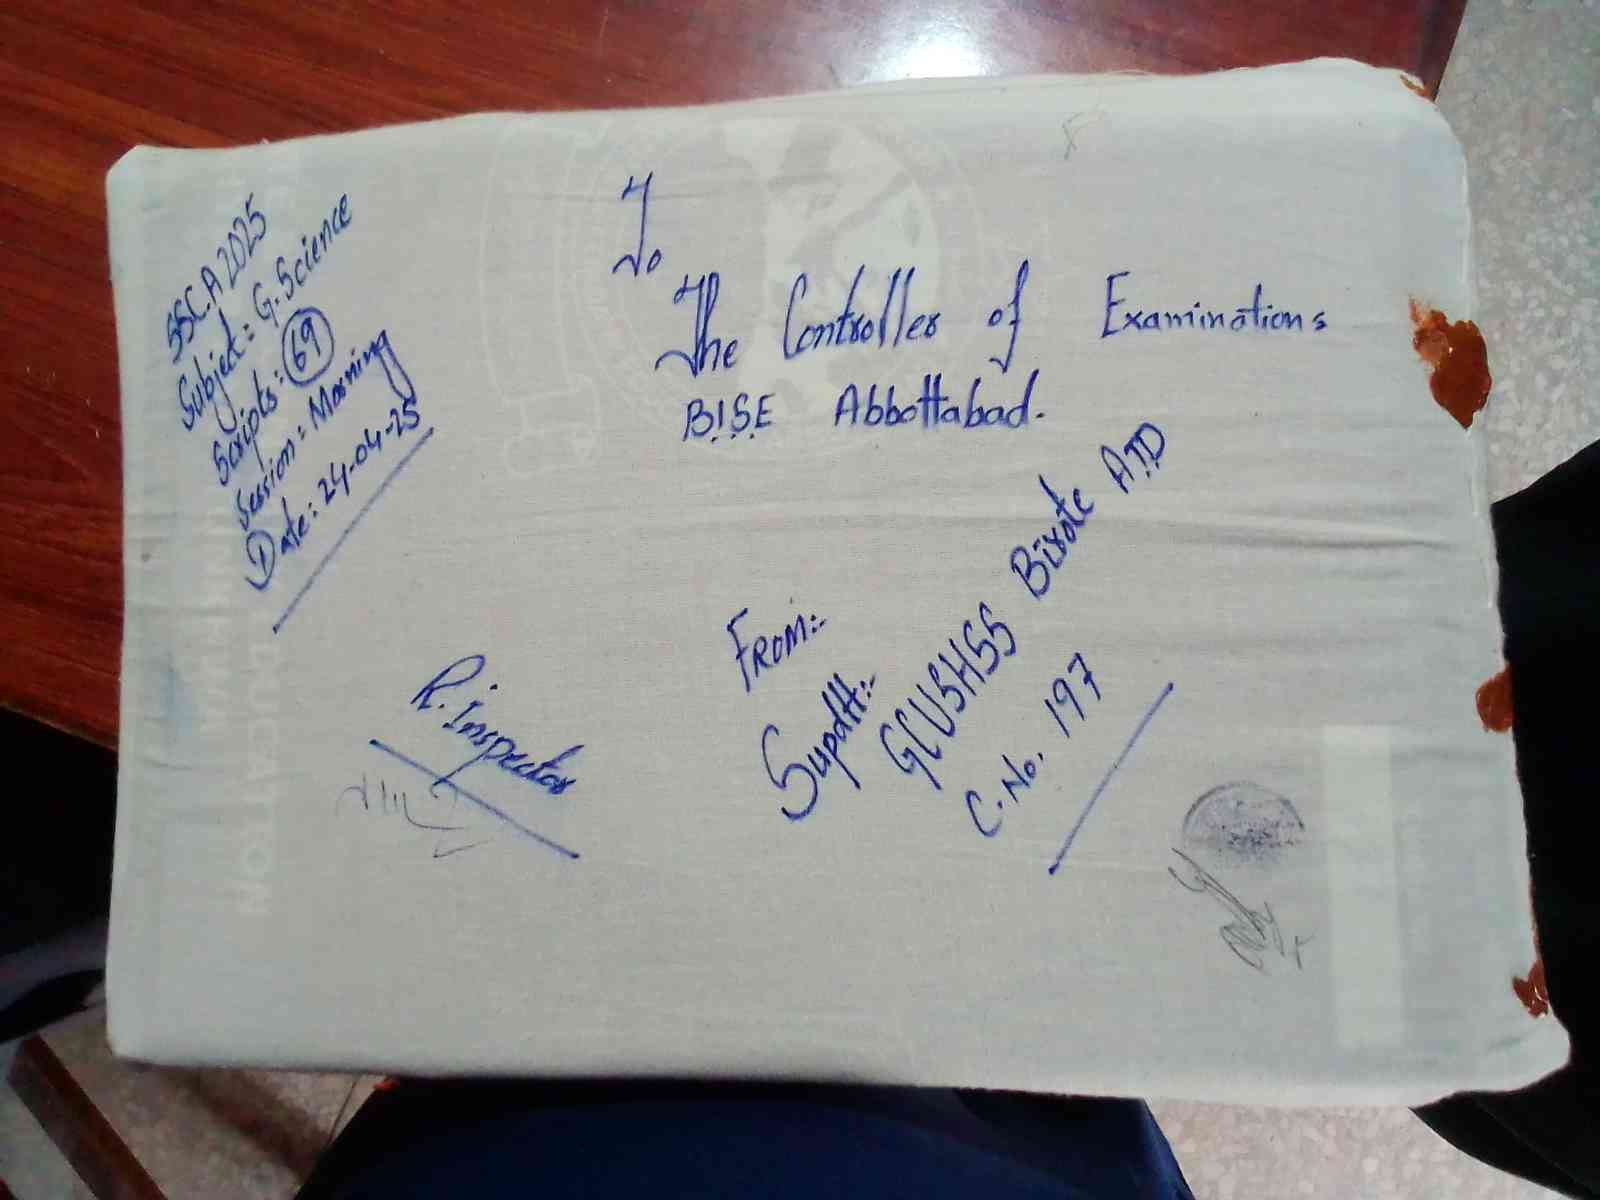 SSC.A 2025
Subject: G.Science
Scripts: 69
Session: Morning
Date: 24-04-25
To
The Controller of Examinations
B.I.S.E Abbottabad.
R. Inspector
FROM:-
Supdtt:-
GCUSHSS Birote ATD
C. No. 197